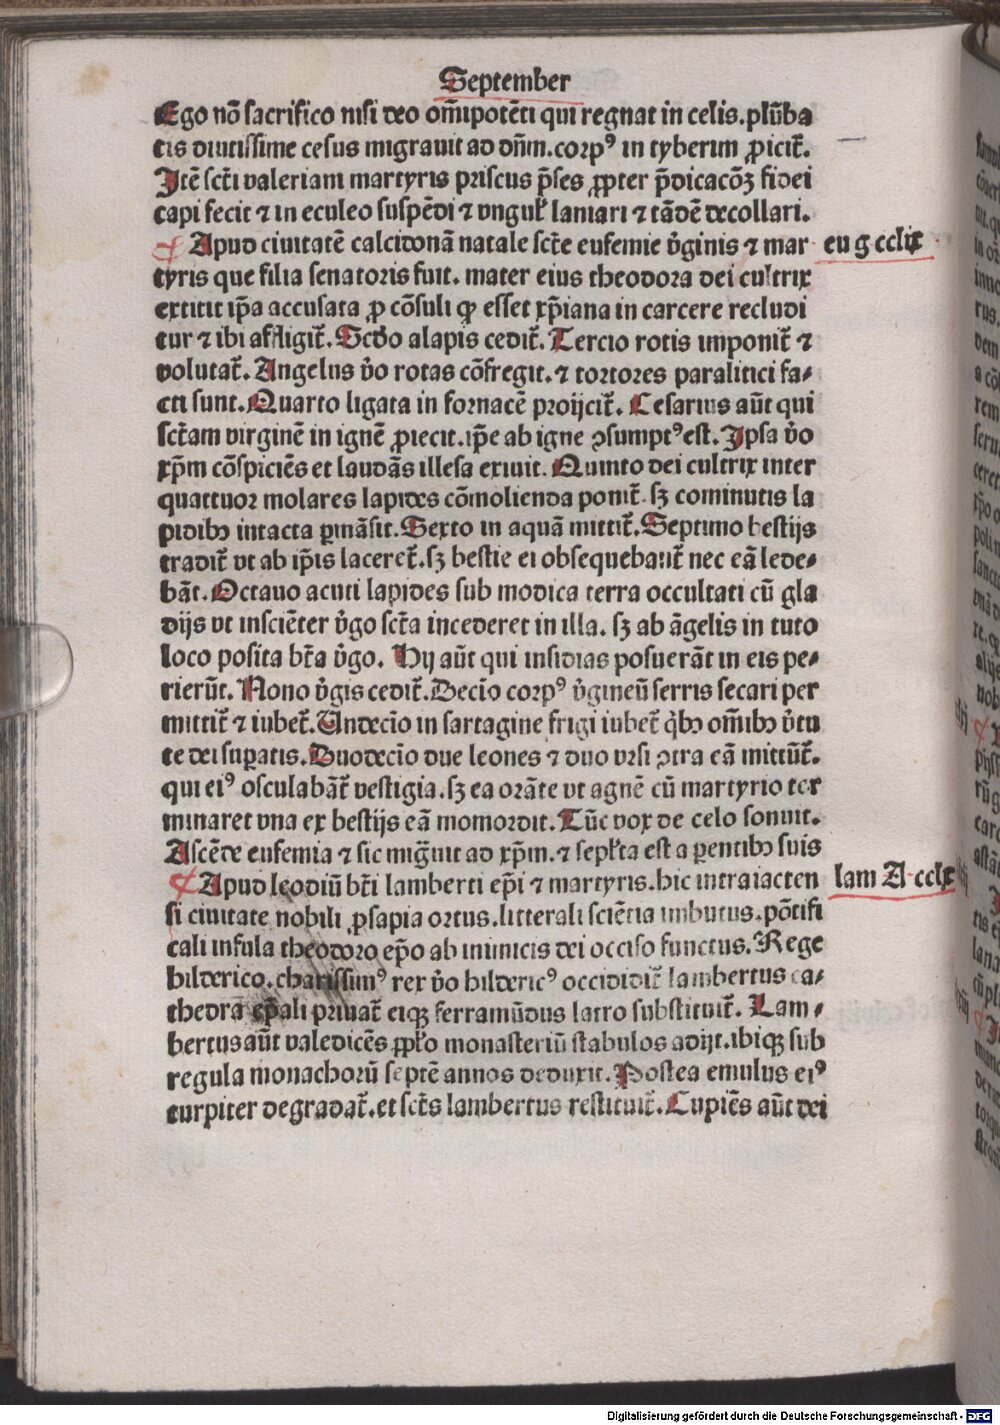 September
Ego nō sacrifico nisi deo om̄ipotēti qui regnat in celis. plūba
tis diutissime cesus migrauit ad dn̄m. corpꝰ in tyberim ꝓicit̄.
Itē sct̄i valeriani martyris priscus p̄ses ꝓpter p̄dicacōꝫ fidei
capi fecit ⁊ in eculeo suspēdi ⁊ vngul̄ laniari ⁊ tādē decollari.
¶ Apud ciuitatē calcidonā natale sct̄e eufemie v̄ginis ⁊ mar
eu g cclix
tyris que filia senatoris fuit. mater eius theodora dei cultrix
extitit ip̄a accusata ꝓ cōsuli ꝙ esset xp̄iana in carcere recludi
tur ⁊ ibi affligit̄. Scd̄o alapis cedit̄. Tercio rotis imponit̄ ⁊
volutat̄. Angelus v̄o rotas cōfregit. ⁊ tortores paralitici fa⸗
cti sunt. Quarto ligata in fornacē proijcit̄. Cesarius aūt qui
sct̄am virginē in ignē ꝓiecit. ip̄e ab igne ꝯsumptꝰ est. Ipsa v̄o
xp̄m cōspiciēs et laudās illesa exiuit. Quinto dei cultrix inter
quattuor molares lapides cōmolienda ponit̄. sꝫ cominutis la
pidibꝫ intacta ꝑmāsit. Sexto in aquā mittit̄. Septimo bestijs
tradit̄ vt ab ip̄is laceret̄. sꝫ bestie ei obsequebant̄ nec eā lede⸗
bāt. Octauo acuti lapides sub modica terra occultati cū gla
dijs vt insciēter v̄go sct̄a incederet in illa. sꝫ ab āgelis in tuto
loco posita bt̄a v̄go. Hij aūt qui insidias posuerāt in eis pe⸗
rierūt. Nono v̄gis cedit̄. Decīo corpꝰ v̄gineū serris secari per
mittit̄ ⁊ iubet̄. Vndecīo in sartagine frigi iubet̄ q̄bꝫ om̄ibꝫ v̄tu
te dei suꝑatis. Duodecīo due leones ⁊ duo vrsi ꝯtra eā mittūt̄.
qui eiꝰ osculabāt̄ vestigia. sꝫ ea orāte vt agnē cū martyrio ter
minaret vna ex bestijs eā momordit. Tūc vox de celo sonuit.
Ascēde eufemia ⁊ sic mig̃uit ad xp̄m. ⁊ sepl̄ta est a ꝑentibꝫ suis
¶ Apud leodiū bt̄i lamberti ep̄i ⁊ martyris. hic intraiacten
lam A cclx
si ciuitate nobili ꝓsapia ortus. litterali sciētia imbutus. pōtifi
cali infula theodoro ep̄o ab inimicis dei occiso functus. Rege
hilderico. charissimꝰ rex v̄o hildericꝰ occididit̄ lambertus ca⸗
thedra ep̄ali priuat̄ eiqꝫ ferramūdus latro substituit̄. Lam⸗
bertus aūt valedicēs pp̄l̄o monasteriū stabulos adijt. ibiqꝫ sub
regula monachorū septē annos deduxit. Postea emulus eiꝰ
turpiter degradat̄. et sct̄s lambertus restituit̄. Cupiēs aūt dei
Digitalisierung gefördert durch die Deutsche Forschungsgemeinschaft - DFG